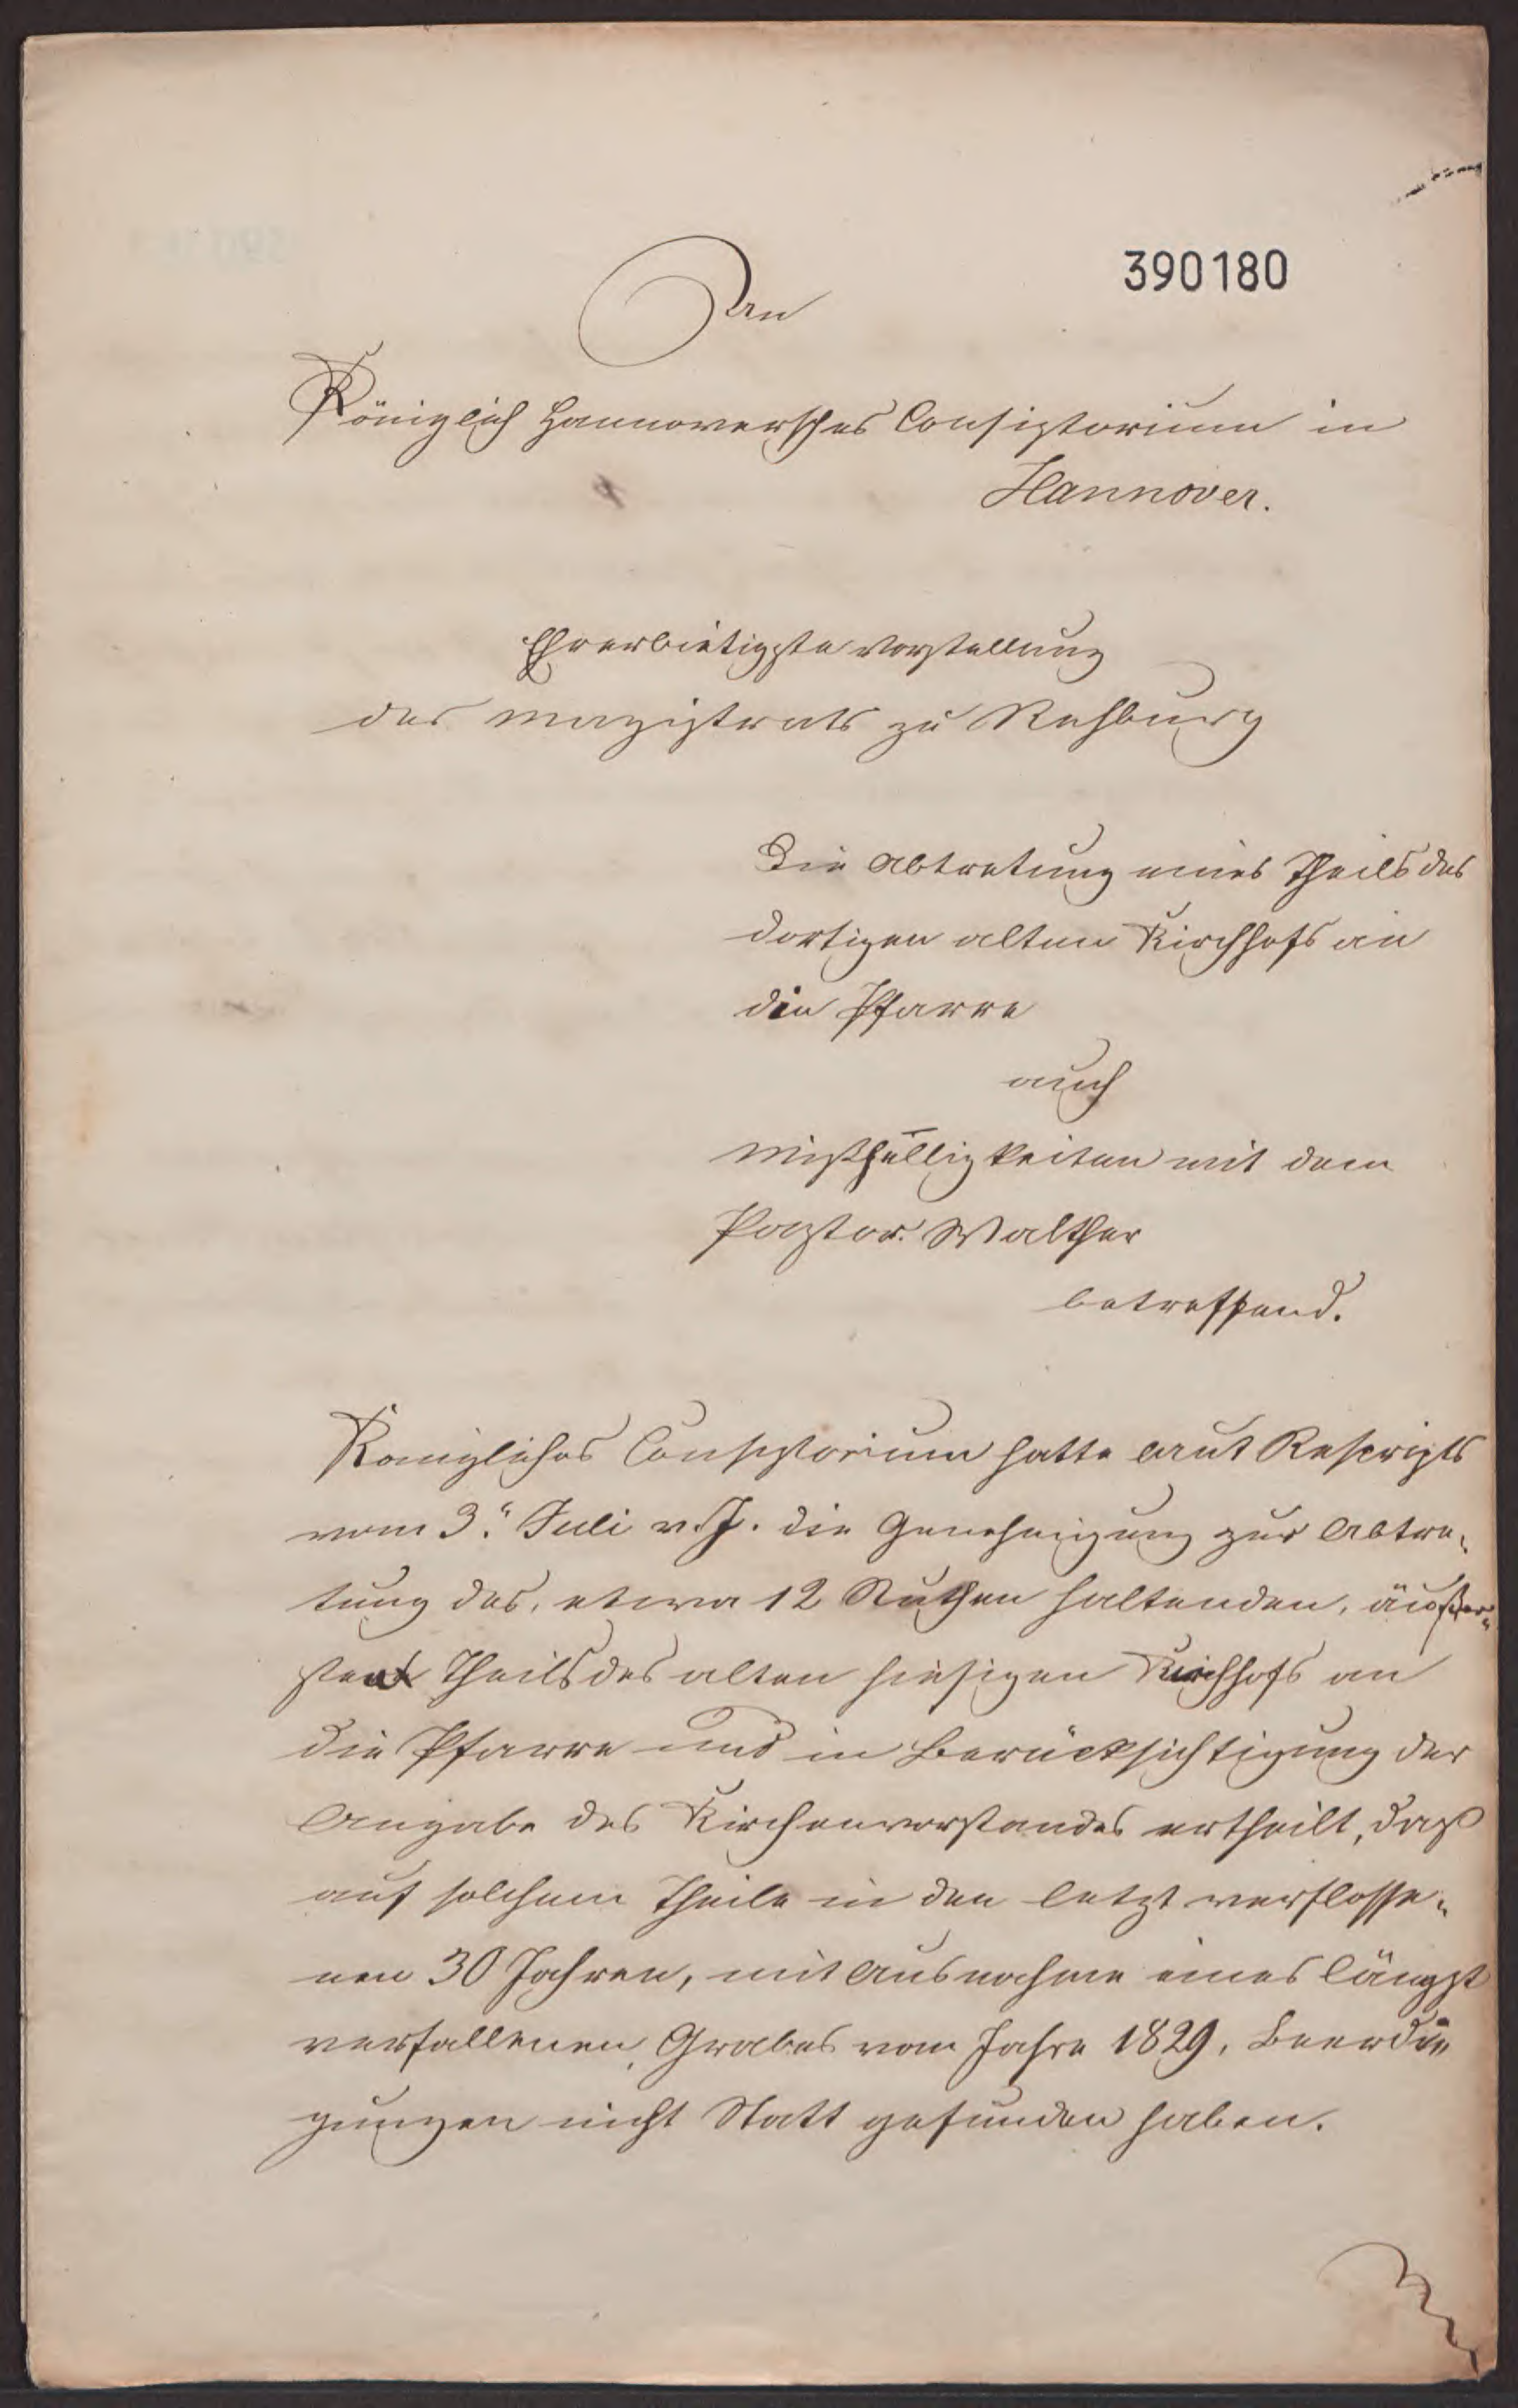 390180
An
Königlich Hannoversches Consistorium in
Hannover.
Ehrerbietigste Vorstellung
des Magistrats zu Rehburg
Die Abtretung eines Theils des
dortigen alten Kirchhofs an
die Pfarre
auch
Mißhelligkeiten mit dem
Pastor Walther
betreffend.
Königliches Consistorium hatte laut Rescripts
vom 3. Juli v. J. die Genehmigung zur Abtre-
tung des, etwa 12 Ruthen haltenden, äußer-
sten Theils des alten hiesigen Kirchhofs an
die Pfarre und in Berücksichtigung der
Angabe des Kirchenvorstandes ertheilt, daß
auf solchem Theile in den letzt verflosse-
nen 30 Jahren, mit Ausnahme eines längst
verfallenen, Grabes vom Jahre 1829, Beerdi-
gungen nicht Statt gefunden haben.